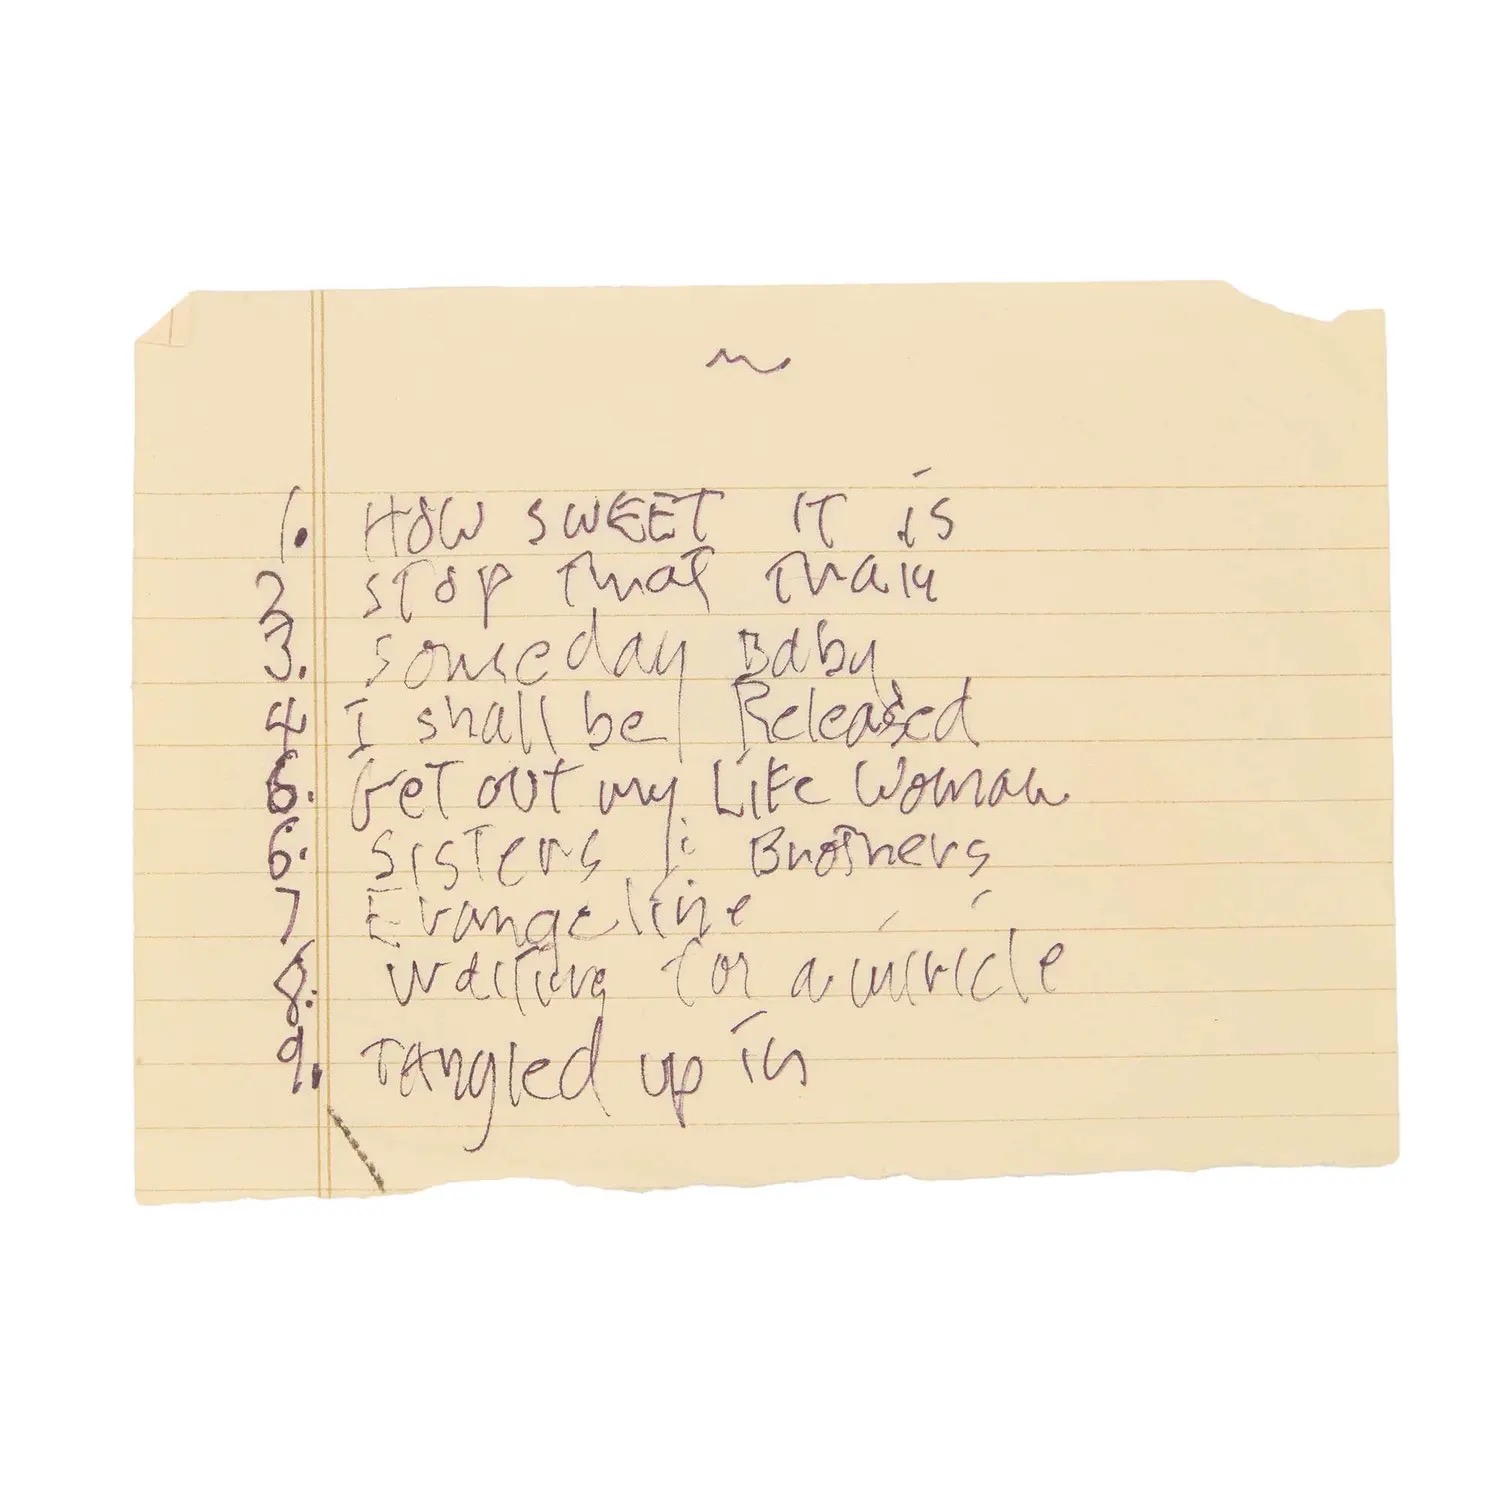 1. HOW SWEET IT is
2 STOP That Train
3. Someday Baby
4 I shall be Released
5. Get out my Life Woman
6. Sisters & Brothers
7 Evangeline
8. waiting for a miricle
9. TAngled up in